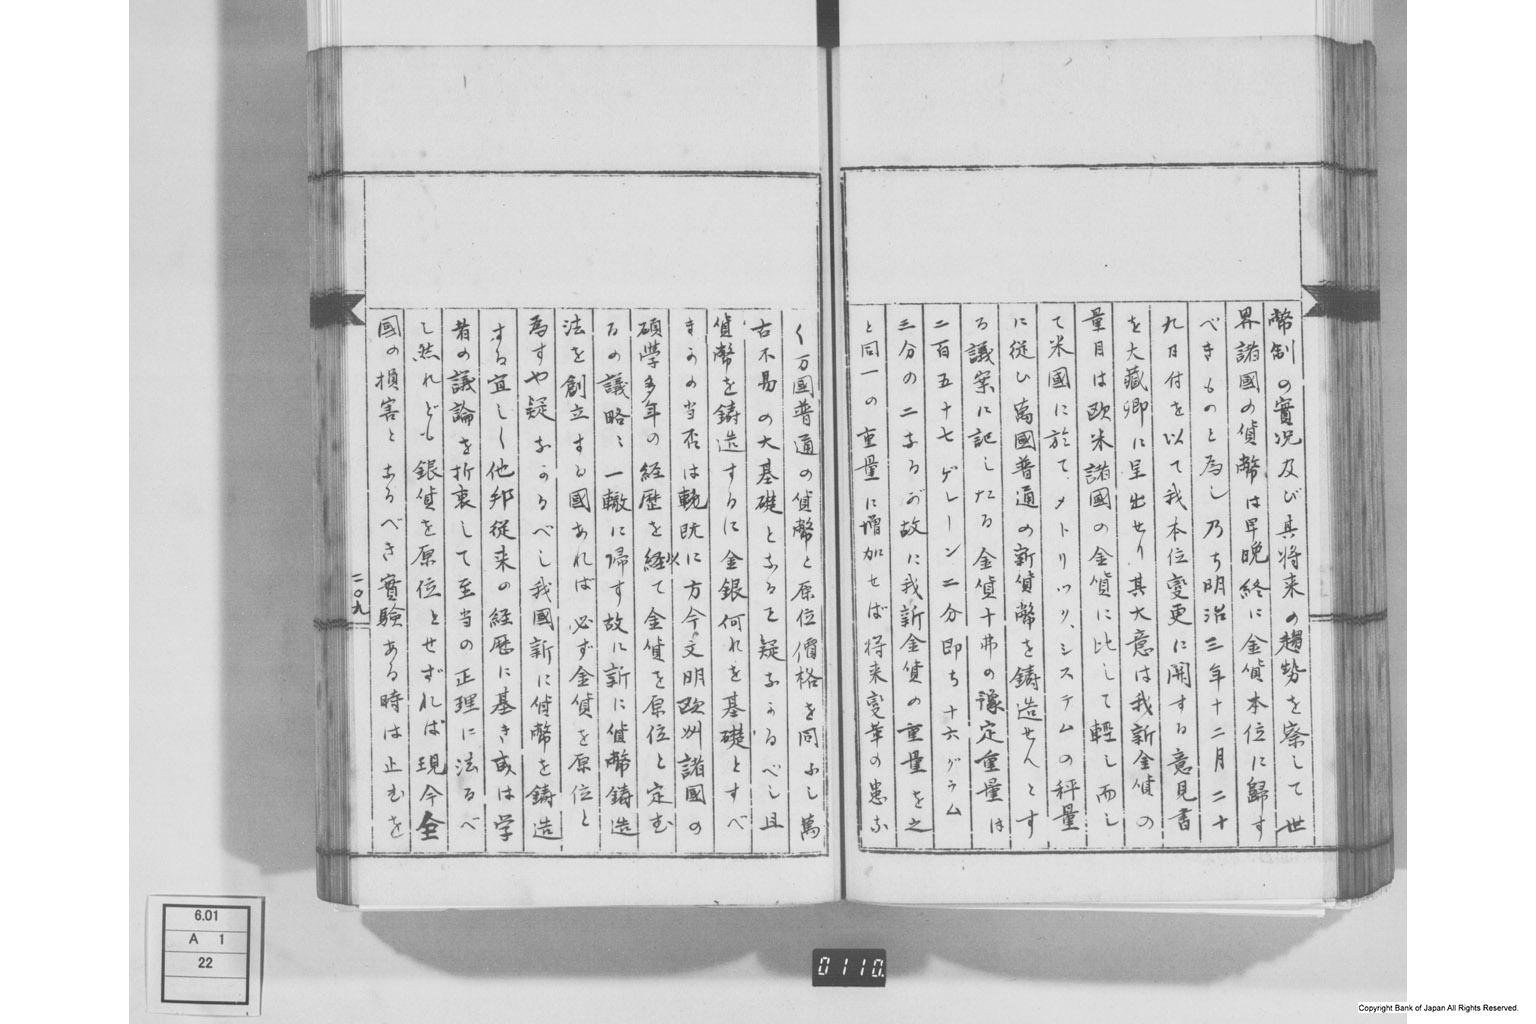 幣制の實况及び其将来の趨勢を察して世
界諸國の貨幣は早晩終に金貨本位に歸す
べきものと為し乃ち明治三年十二月二十
九日付を以て我本位変更に関する意見書
を大藏卿に呈出せり其大意は我新金貨の
量目は欧米諸國の金貨に比して輕し而し
て米國に於てメトリック、システムの秤量
に従ひ萬國普通の新貨幣を鋳造せんとす
る議案に記したる金貨十弗の豫定重量は
二百五十七ゲレーン二分即ち十六グラム
三分の二なるが故に我新金貨の重量を之
と同一の重量に増加せば将来変革の患な
く万國普通の貨幣と原位價格を同ふし萬
古不易の大基礎となるを疑なかるべし且
貨幣を鋳造するに金銀何れを基礎とすべ
きかの当否は輓既に方今文明欧州諸國の
碩學多年の経歴を経て金貨を原位と定む
るの議略ゝ一轍に帰す故に新に貨幣鋳造
法を創立する國あれば必ず金貨を原位と
為すや疑なかるべし我國新に貨幣を鋳造
する宜しく他邦従来の経歴に基き或は学
者の議論を折衷して至当の正理に法るべ
し然れども銀貨を原位とせずれば現今全
國の損害となるべき實験ある時は止むを
二〇九
6.01
A 1
22
0110.
Copyright Bank of Japan All Rights Reserved.